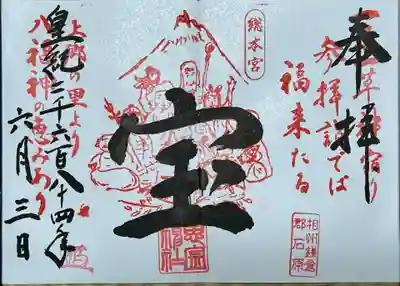 奉拝
参拝詣では
福来たる
総本宮
宝
上郷の里より
八福神の恵みあり
皇紀二千六百八十四年
六月三日
相州鎌倉
郡石原